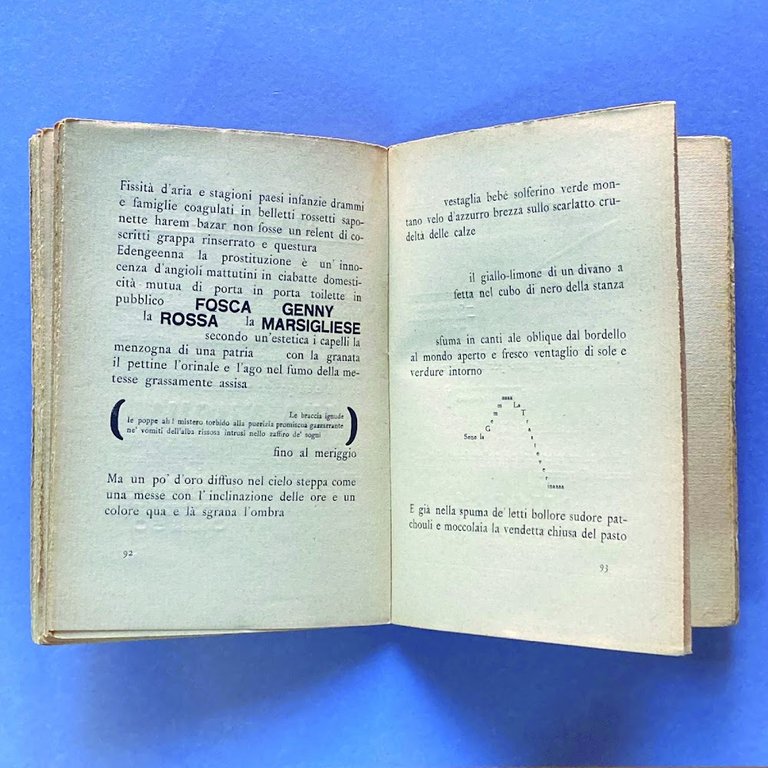 Fissità d'aria e stagioni paesi infanzie drammi
e famiglie coagulati in belletti rossetti sapo-
nette harem bazar non fosse un relent di co-
scritti grappa rinserrato e questura
Edengeenna la prostituzione è un' inno-
cenza d'angioli mattutini in ciabatte domesti-
cità mutua di porta in porta toilette in
pubblico FOSCA GENNY
la ROSSA la MARSIGLIESE
secondo un'estetica i capelli la
menzogna di una patria con la granata
il pettine l'orinale e l'ago nel fumo della me-
tesse grassamente assisa
( Le braccia ignude
le poppe ah! mistero torbido alla puerizia promiscua gazzarrante
ne' vomiti dell'alba rissosa intrusi nello zaffiro de' sogni )
fino al meriggio
Ma un po' d'oro diffuso nel cielo steppa come
una messe con l'inclinazione delle ore e un
colore qua e là sgrana l'ombra
92
vestaglia bebé solferino verde mon-
tano velo d'azzurro brezza sullo scarlatto cru-
deltà delle calze
il giallo-limone di un divano a
fetta nel cubo di nero della stanza
sfuma in canti ale oblique dal bordello
al mondo aperto e fresco ventaglio di sole e
verdure intorno
Sono la Gemmmaaaa La Trasteverinaaaa
E già nella spuma de' letti bollore sudore pat-
chouli e moccolaia la vendetta chiusa del pasto
93